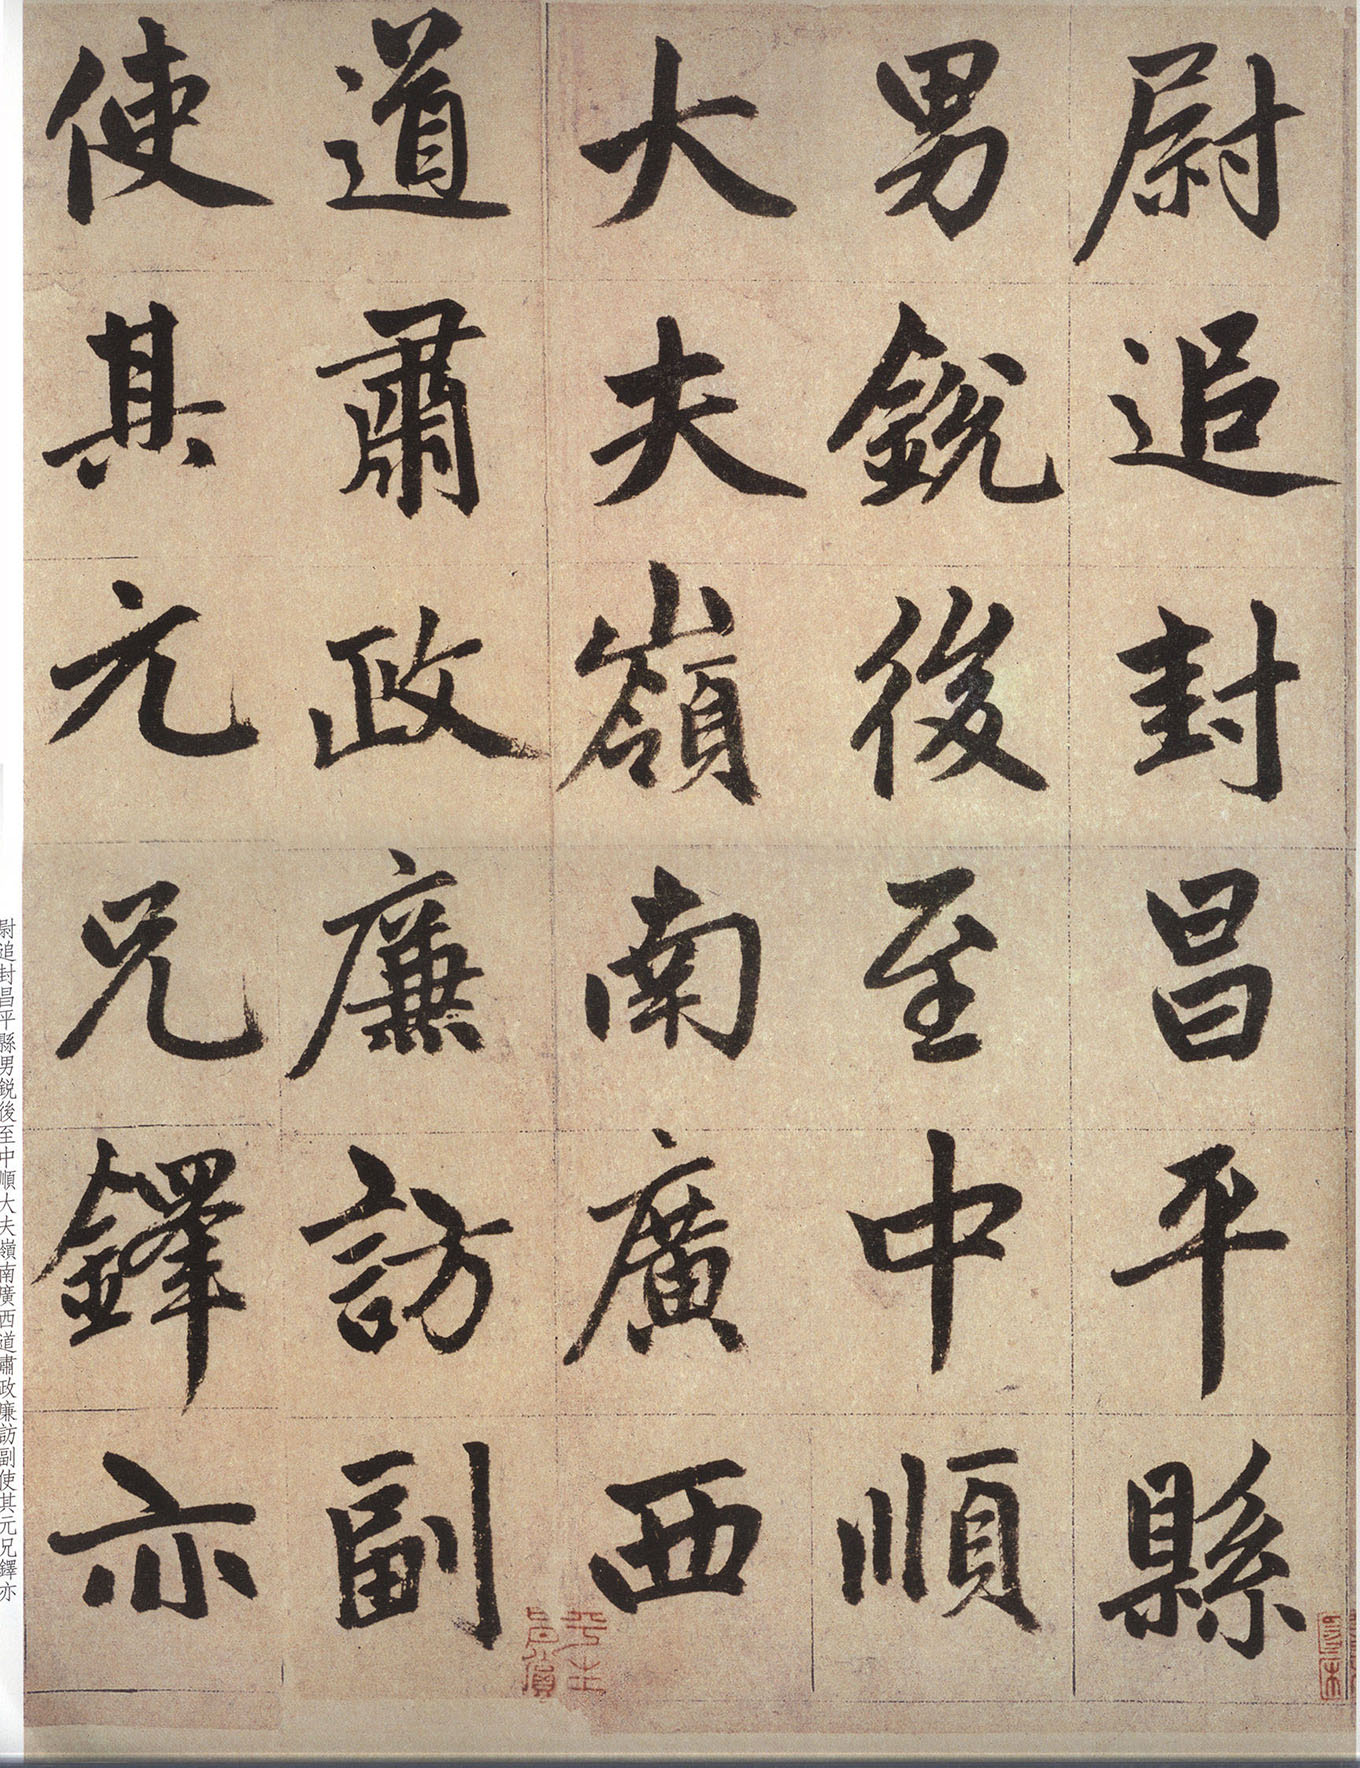 尉追封昌平縣
男銳後至中順
大夫嶺南廣西
道肅政廉訪副
使其元兄鐸亦
尉追封昌平縣男鋭後至中順大夫嶺南廣西道肅政廉訪副使其元兄鐸亦